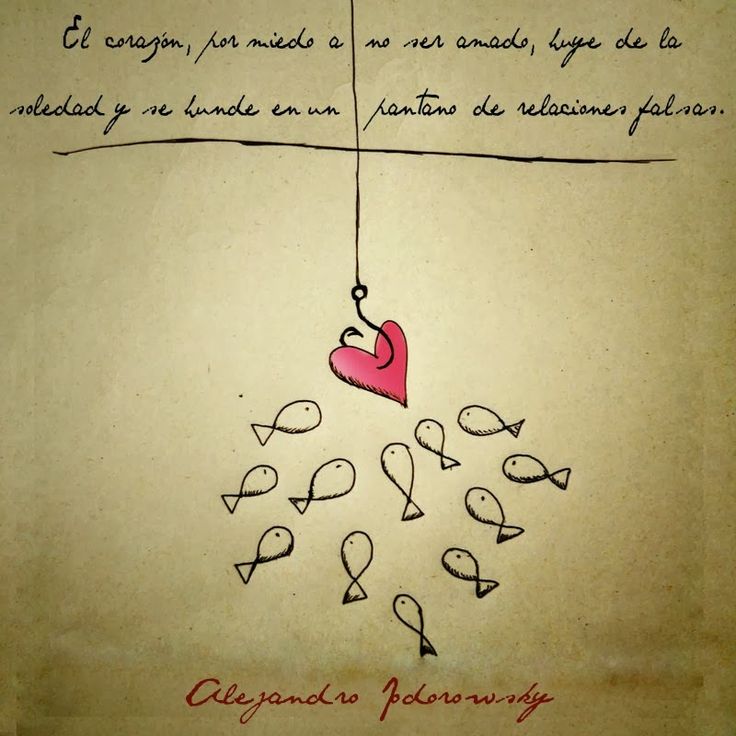 El corazón, por miedo a no ser amado, huye de la
soledad y se hunde en un pantano de relaciones falsas.
Alejandro Jodorowsky